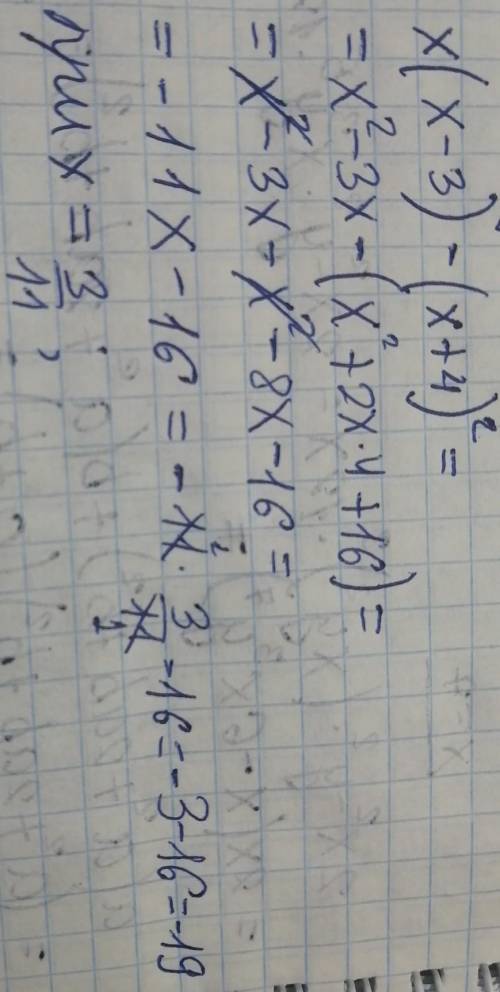 x(x-3)-(x+4)²=
=x²-3x-(x²+2x·4+16)=
=x²-3x-x²-8x-16=
=-11x-16=-11·3/11-16=-3-16=-19
при x=3/11,